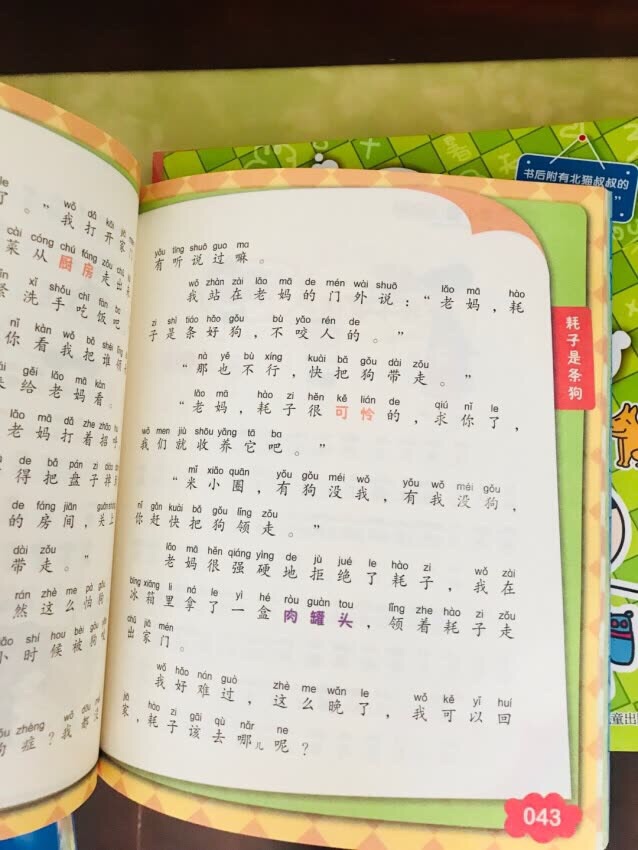 le wǒ dǎ kāi
了。”我打开家门
cài cóng chú fáng zǒu chū
菜从厨房走出来
xǐ shǒu chī fàn ba
紧洗手吃饭吧
nǐ kàn wǒ bǎ shéi lǐng
你看我把谁领
lái gěi lǎo mā kàn
来给老妈看。
lǎo mā dǎ zhe zhāo hu
老妈打着招呼
de bǎ pán zi
得把盘子
de fáng jiān guān shàng
的房间，关上
dài zǒu
带走。”
rán zhè me pà gǒu
然这么怕狗
xiǎo shí hou bèi gǒu
小时候被狗
zhèng wǒ dōu
症？我都没
yǒu tīng shuō guo ma
有听说过嘛。
wǒ zhàn zài lǎo mā de mén wài shuō lǎo mā hào
我站在老妈的门外说：“老妈，耗
zi shì tiáo hǎo gǒu bù yǎo rén de
子是条好狗，不咬人的。”
nà yě bù xíng kuài bǎ gǒu dài zǒu
“那也不行，快把狗带走。”
lǎo mā hào zi hěn kě lián de qiú nǐ le
“老妈，耗子很可怜的，求你了，
wǒ men jiù shōu yǎng tā ba
我们就收养它吧。”
mǐ xiǎo quān yǒu gǒu méi wǒ yǒu wǒ méi gǒu
“米小圈，有狗没我，有我没狗，
nǐ gǎn kuài bǎ gǒu lǐng zǒu
你赶快把狗领走。”
lǎo mā hěn qiáng yìng de jù jué le hào zi wǒ zài
老妈很强硬地拒绝了耗子，我在
bīng xiāng li ná le yì hé ròu guàn tou lǐng zhe hào zi zǒu
冰箱里拿了一盒肉罐头，领着耗子走
chū jiā mén
出家门。
wǒ hǎo nán guò zhè me wǎn le wǒ kě yǐ huí
我好难过，这么晚了，我可以回
jiā hào zi gāi qù nǎr ne
家，耗子该去哪儿呢？
耗子是条狗
043
书后附有北猫叔叔的
童出